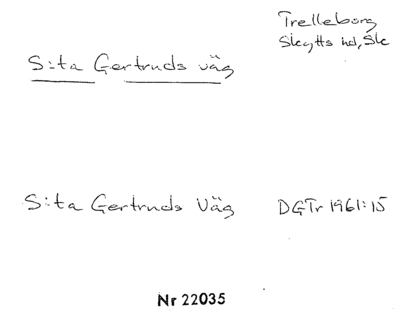 Trelleborg
Skytts hd, Sk
S:ta Gertruds väg
S:ta Gertruds Väg DGTr 1961:15
Nr 22035